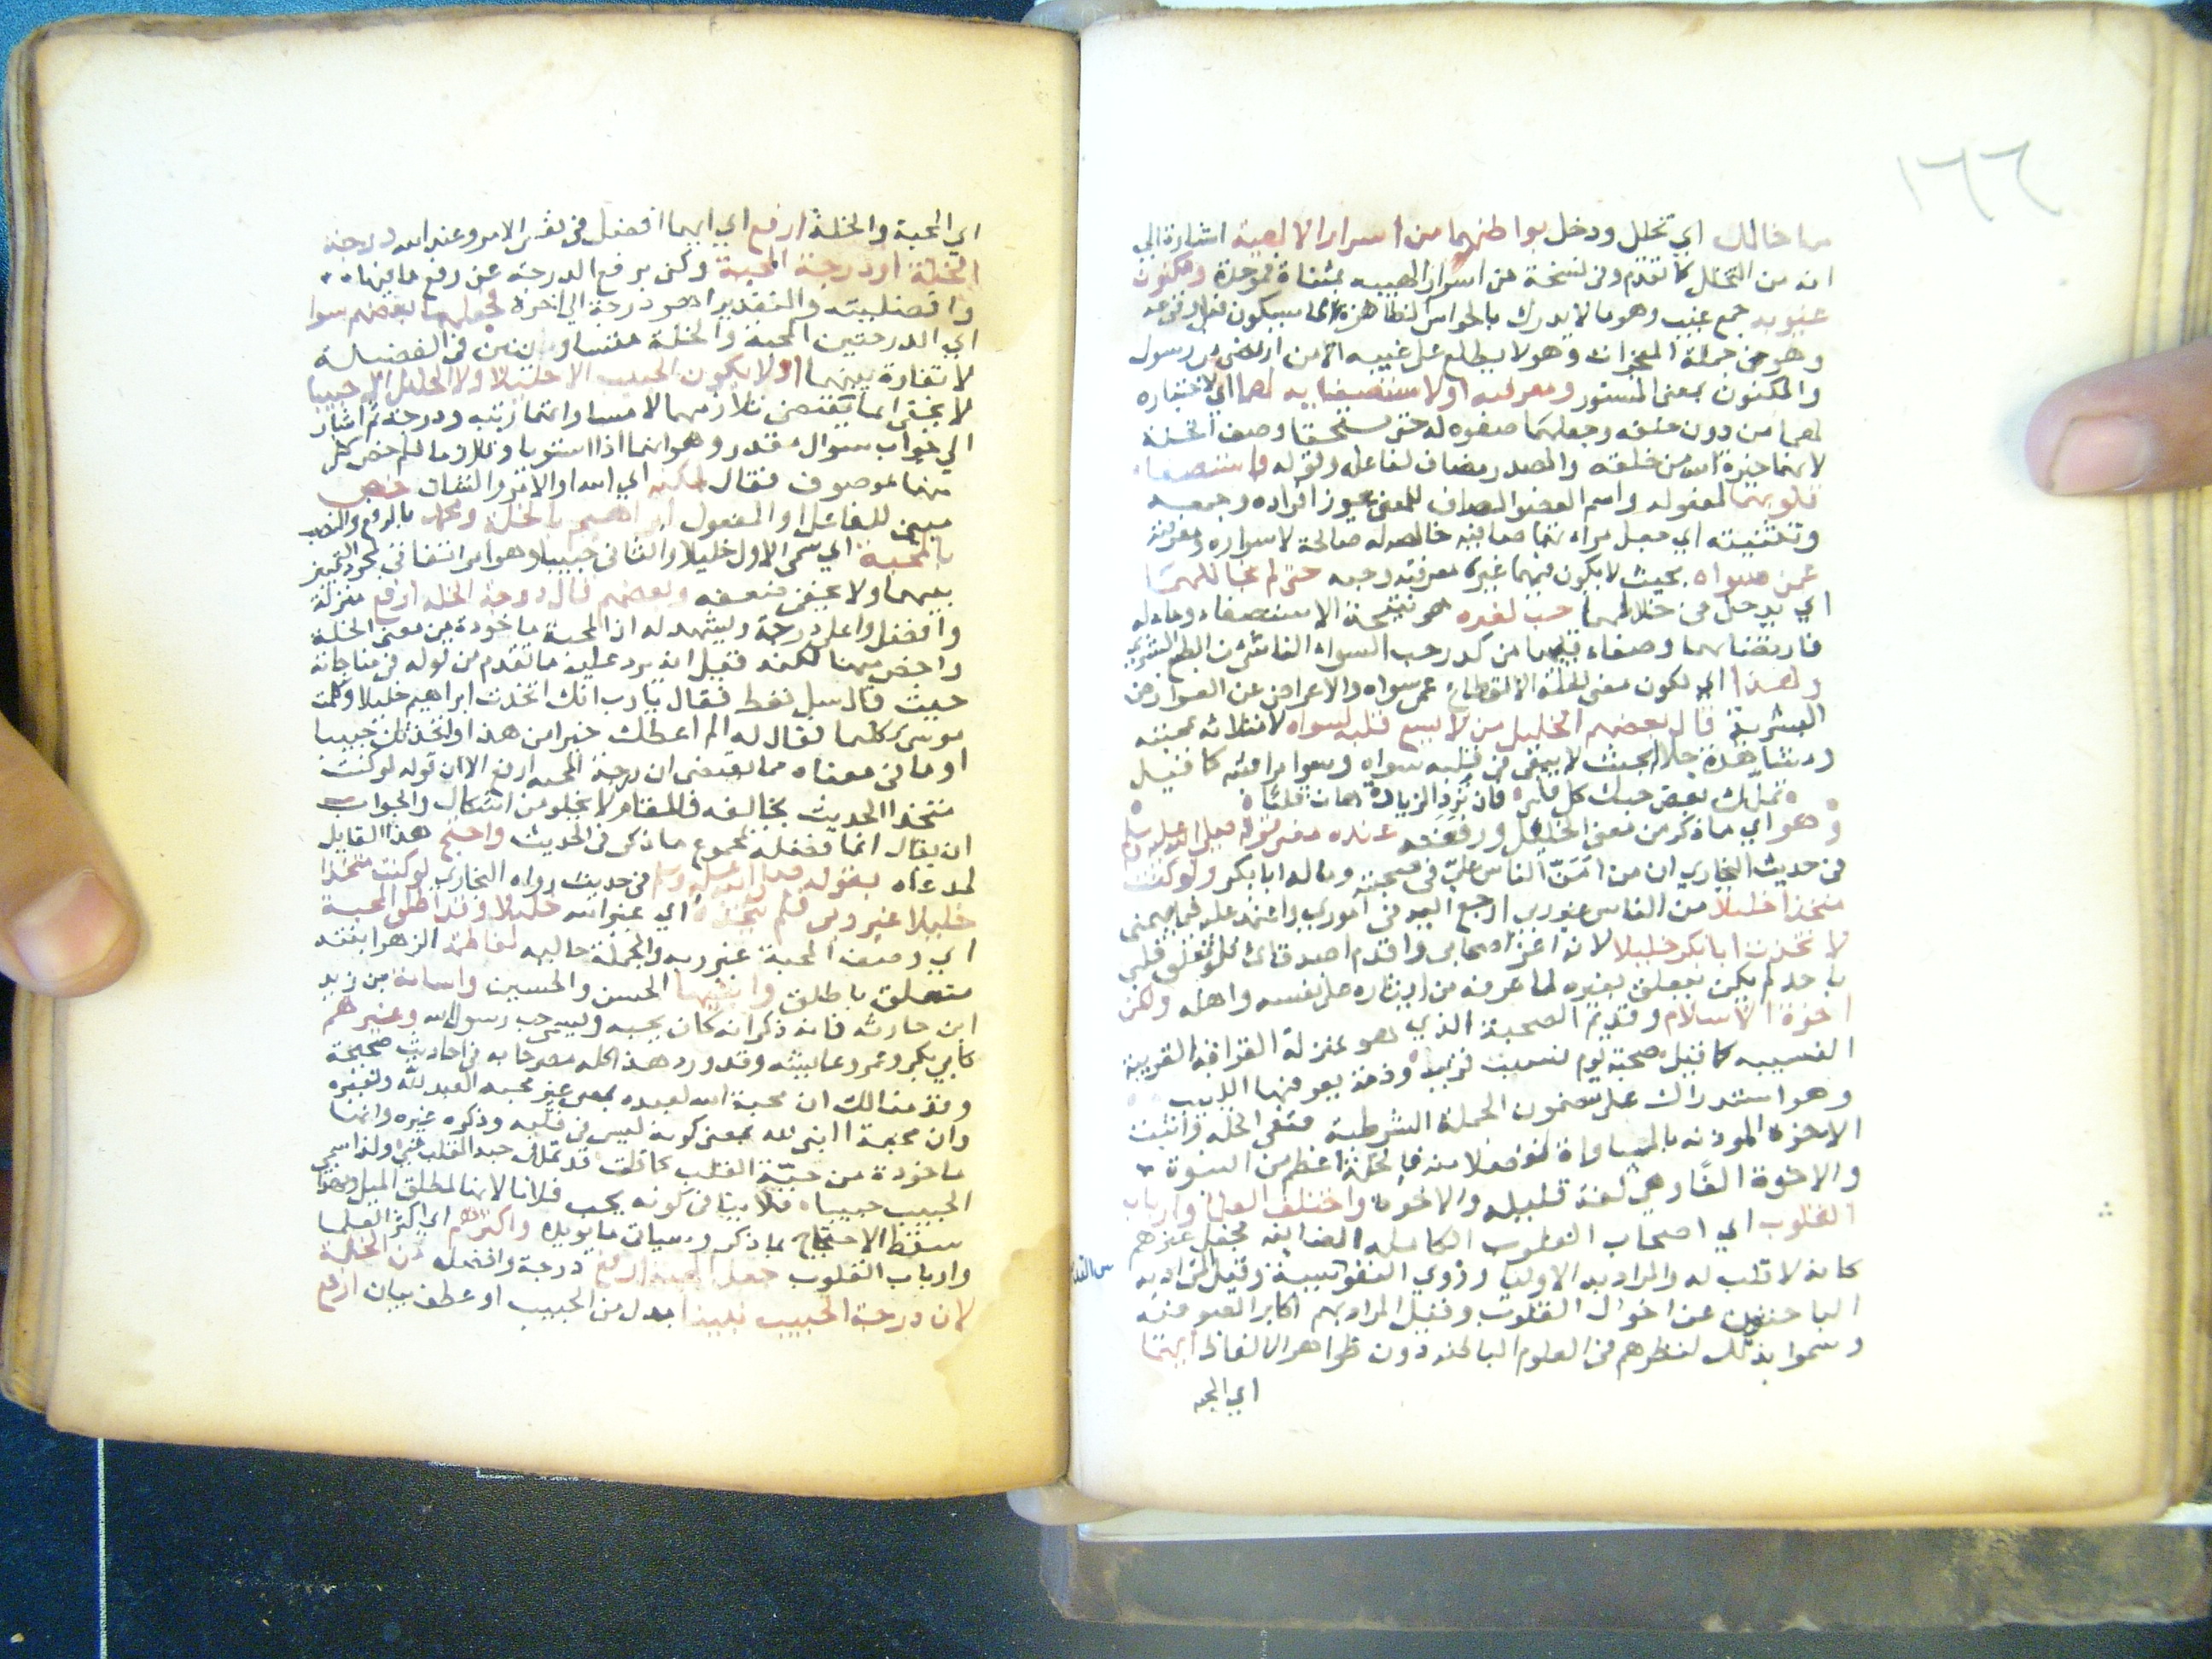 ١٦٦
ما خالل اي تخلل ودخل بواطنهما من اسرار الالهية اشارة الي
انه من التخلل كما تقدم وفي نسخة من اسرار الهيته بمثناة فموحدة ومكنون
غيوبه جمع غيب وهو ما لا يدرك بالحواس الظاهرة
وهو من جملة المغيبات وهو لا يطلع على غيبه الا من ارتضى من رسول
والمكنون بمعنى المستور ومعرفته اولاستصفايه لهما اي لاختياره
لهما من دون خلقه وجعلهما صفوه له حتى يستحقا وصف الخلة
لانهما خيرة الله من خلقه والمصدر مضاف لفاعله وقوله واستصفاء
قلوبهما لمفعوله واسم العضو المضاف للمعنى يجوز افراده وجمعه
وتثنيته اي جعل مراتهما صافية خالصة له صالحة لاسراره ومعرفته
عمن سواه بحيث لا يكون فيهما غيره معرفته وحبه حتى لم يخاللهما
اي يدخل في خلالهما حب لغيره هو نتيجة الاستصفاء وما دله
فارتضاهما وصفاء قلبهما من كدر حب السواء الناشئ من الطبع البشري
ولهذا اي لكون معنى الخلة الانقطاع عمن سواه والاعراض عن العوارض
البشرية قال بعضهم الخليل من لا يسع قلبه لسواه لامتلائه بمحبته
ومشاهدة جلاله بحيث لا يبقى في قلبه سواه وسوا مراقبته كما قيل
تملك بعض حبك كل قلبي فان ترد الزيادة هات قلبا
وهو اي ما ذكر من معنى الخليل ورفعته عنده معنى قوله صلى الله عليه وسلم
في حديث البخاري ان من امن الناس علي في صحبته وماله ابا بكر ولو كنت
متخذا خليلا من الناس غير ربي ارجع اليه في اموري واعتمد عليه فيما يهمني
لاتخذت ابا بكر خليلا لانه اعز اصحابي واقدم اصدقائي فلو تعلق قلبي
باحد لم يكن تعلق بغيره لما عرفه من ايثاره على نفسه واهله ولكن
اخوة الاسلام وقديم الصحبة الذي هو بمنزلة القرابة القريبة
النسبيه كما قيل صحبة يوم نسب قريب وذمة يعرفها اللبيب
وهو استدراك على مضمون الجملة الشرطية فنفى الخلة واثبت
الاخوة الموذنه بالمساواة
والاخوة الفا وهي لغة قليلة والاخوة واختلف العلما وارباب
القلوب اي اصحاب القلوب الكاملة الصافية فجعل غيرهم
كانه لا قلب له والمراد به الاوليا وذوي النفوس وقيل المراد به
الباحثون عن احوال القلوب وقيل المراد بهم اكابر الصوفية
وسموا بذلك لنظرهم في العلوم الباطنه دون ظواهر الالفاظ ايهما
اي المحبة
اي المحبة والخلة ارفع اي ايهما افضل في نفس الامر وعند الله درجة
الخلة او درجة المحبة وكني برفع الدرجة عن رفع ما فيها
وافضليته والتقدير اهو درجة الى اخره فجعلهما بعضهم سوا
اي الدرجتين المحبة والخلة متساويتين في الفضيلة
لا تفاوت بينهما اولا يكون الحبيب الا خليلا ولا الخليل الا حبيبا
لا يخفى انما يقتضي تلازمهما لا مساواتهما رتبه ودرجة ثم اشار
الي جواب سوال مقدر وهو انهما اذا استويا وتلازما لم خص كل
منهما بموصوف فقال لكنه اي الله او الامر والشان خص
مبني للفاعل او المفعول ابراهيم بالخلة ومحمد بالرفع والنصب
بالمحبة اي سمى الاول خليلا والثاني حبيبا وهو امر اتفاقي لمجرد التميز
بينهما ولا يخفى ضعفه وبعضهم قال درجة الخله ارفع منزلة
وافضل واعلى درجة ويشهد له ان المحبة ماخوذة من معنى الخلة
واخص منها لكنه قيل انه يرد عليه ما تقدم من قوله في مناجاته
حيث قال سل تعط فقال يا رب انك اتخذت ابراهيم خليلا وكلمت
موسى تكليما فقال له الم اعطك خيرا من هذا واتخذتك حبيبا
او ما في معناه مما يقتضي ان درجة المحبه ارفع الا ان قوله لو كنت
متخذا الحديث يخالفه فالمقام لا يخلو من اشكال والجواب
ان يقال انما فضله بمجموع ما ذكر في الحديث واحتج هذا القايل
لمدعاه بقوله صلى الله عليه وسلم في حديث رواه البخاري لو كنت متخذا
خليلا غير ربي فلم يتخذه اي غير الله خليلا وقد اطلق المحبة
اي وصفه المحبة غير ربه والجملة حاليه لفاطمة الزهرا ابنته
متعلق باطلق وابنيها الحسن والحسين واسامة بن زيد
ابن حارثه فانه ذكر انه كان يحبه وليس حب رسول الله وغيرهم
كابي بكر وعمر وعايشه وقد ورد هذا كله مصرحا به في احاديث صحيحة
وقدمنا لك ان محبة الله لعبده بمعنى غير محبه العبد لله ولغيره
وان محبة النبي لله بمعنى كونه ليس في قلبه وذكره غيره وانها
ماخوذة من حبة القلب كما قلت قد تملك حبه القلب مني ولذا سمي
الحبيب حبيبا فلا ينافي كونه يحب فلانا لانها لمطلق الميل
سقط الاحتجاج بما ذكر وسياتي ما يويده واكثرهم اي اكثر العلما
وارباب القلوب جعل المحبة ارفع درجة وافضله من الخلة
لان درجة الحبيب نبينا بدل من الحبيب او عطف بيان ارفع